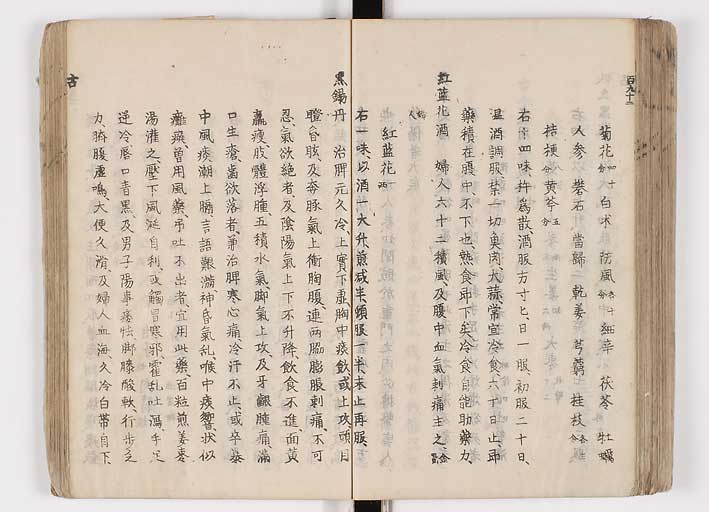 菊花四十分 白朮 防風各十分 細辛 茯苓 牡蠣
人参 礬石 當歸 乾姜 芎藭 桂枝各三分
桔梗八分 黄芩五分
右十四味杵為散酒服方寸匕日一服初服二十日
温酒調服禁一切魚肉大蒜常宜冷食六十日止即
藥積在腹中不下也熱食即下矣冷食自能助藥力
紅藍花酒 婦人六十二種風及腹中血氣刺痛主之
紅藍花一兩
右一味以酒一大升煎减半頓服一半未止再服
黒錫丹 治脾元久冷上實下虚胸中痰飲或上攻頭目
瞪昏眩及奔豚氣上衝胸腹連両脇膨脹刺痛不可
忍氣欲絶者及陰陽氣上下不升降飲食不進面黄
羸痩肢體浮腫五積水氣脚氣上攻及牙齦腫痛滿
口生瘡齒欲落者兼治脾寒心痛冷汗不止或卒暴
中風痰潮上膈言語艱澁神昏氣乱喉中痰響狀似
癱瘓曽用風藥吊吐不出者宜用此藥百粒煎姜棗
湯灌之壓下風涎自利或觸冒寒邪霍乱吐瀉手足
逆冷唇口青黒及男子陽事痿怯脚膝酸軟行歩乏
力臍腹虚鳴大便久滑及婦人血海久冷白帶自下
古
百九十二